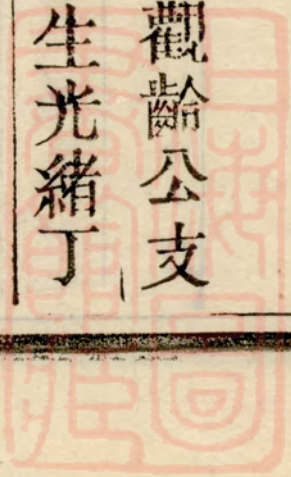 觀齡公支
生光緒丁